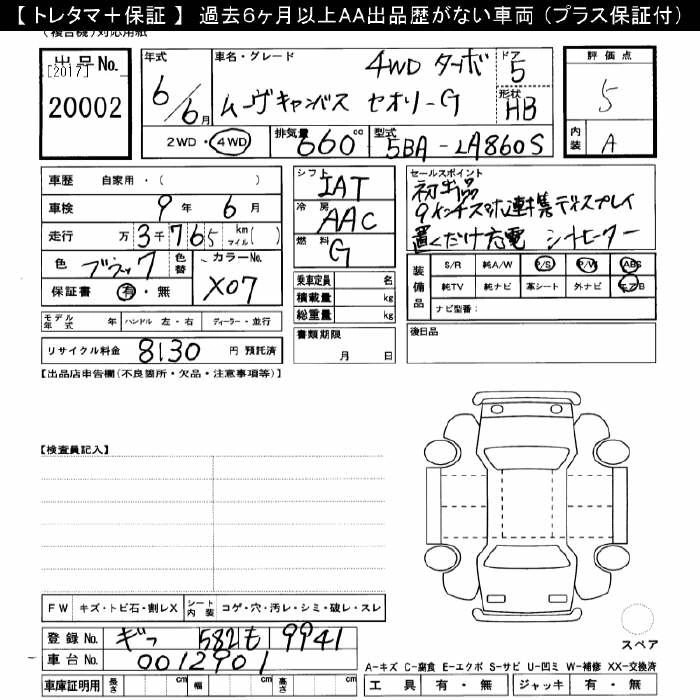 【トレタマ＋保証】 過去6ヶ月以上AA出品歴がない車両（プラス保証付）
(複合機)対応用紙
出品No.
[2017]
20002
年式
6/6月
車名・グレード
4WD ターボ
ムーヴキャンバス セオリーG
ドア
5
形状
HB
評価点
5
内装
A
2WD・4WD
排気量
660cc
型式
5BA-LA860S
車歴 自家用・( )
車検 9年 6月
走行 万3千765 km マイル( )
色 ブラック
色替
カラーNo.
X07
保証書 有・無
モデル年式 年 ハンドル 左・右 ディーラー・並行
リサイクル料金 8130 円 預託済
シフト IAT
冷房 AAC
燃料 G
乗車定員 名
積載量 kg
総重量 kg
書類期限
月 日
セールスポイント
初出品
9インチスマホ連携ディスプレイ
置くだけ充電 シートヒーター
装備品
S/R 純A/W P/S P/W ABS
純TV 純ナビ 革シート 外ナビ エアB
ナビ型番：
後日品
【出品店申告欄(不良箇所・欠品・注意事項等)】
【検査員記入】
FW キズ・トビ石・割レX シート内装 コゲ・穴・汚レ・シミ・破レ・スレ
登録No. ギフ 582も9941
車台No. 0012901
車庫証明用 長さ cm 幅 cm 高さ cm
スペア
A-キズ C-腐食 E-エクボ S-サビ U-凹ミ W-補修 XX-交換済
工具 有・無 ジャッキ 有・無